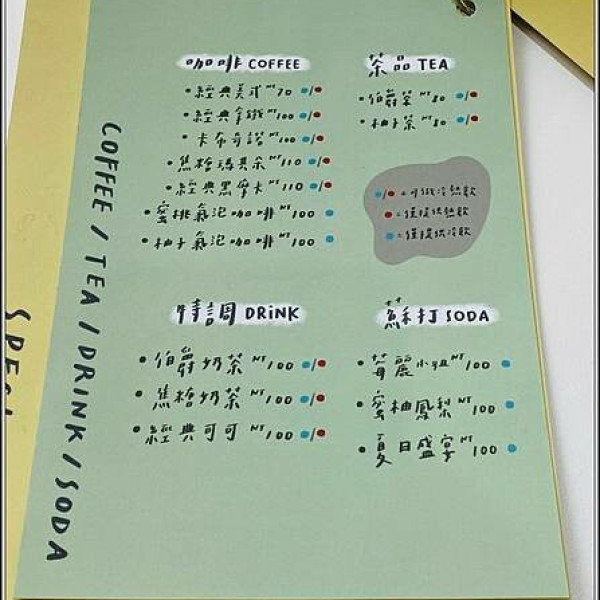 咖啡 COFFEE
•經典美式 NT 70
•經典拿鐵 NT 100
•卡布奇諾 NT 100
•焦糖瑪其朵 NT 110
•經典黑摩卡 NT 110
•蜜桃氣泡咖啡 NT 100
•柚子氣泡咖啡 NT 100
茶品 TEA
•伯爵茶 NT 80
•柚子茶 NT 80
/ = 可做冷熱飲
= 僅提供熱飲
= 僅提供冷飲
特調 DRINK
•伯爵奶茶 NT 100
•焦糖奶茶 NT 100
•經典可可 NT 100
蘇打 SODA
•莓麗小姐 NT 100
•蜜柚鳳梨 NT 100
•夏日盛宴 NT 100
COFFEE / TEA / DRINK / SODA